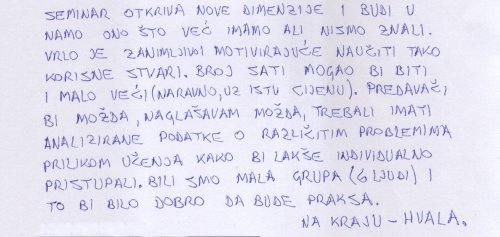 SEMINAR OTKRIVA NOVE DIMENZIJE I BUDI U
NAMO ONO ŠTO VEĆ IMAMO ALI NISMO ZNALI.
VRLO JE ZANIMLJIVO I MOTIVIRAJUĆE NAUČITI TAKO
KORISNE STVARI. BROJ SATI MOGAO BI BITI
I MALO VEĆI (NARAVNO, UZ ISTU CIJENU). PREDAVAČI
BI MOŽDA, NAGLAŠAVAM MOŽDA, TREBALI IMATI
ANALIZIRANE PODATKE O RAZLIČITIM PROBLEMIMA
PRILIKOM UČENJA KAKO BI LAKŠE INDIVIDUALNO
PRISTUPALI. BILI SMO MALA GRUPA (6 LJUDI) I
TO BI BILO DOBRO DA BUDE PRAKSA.
NA KRAJU - HVALA.